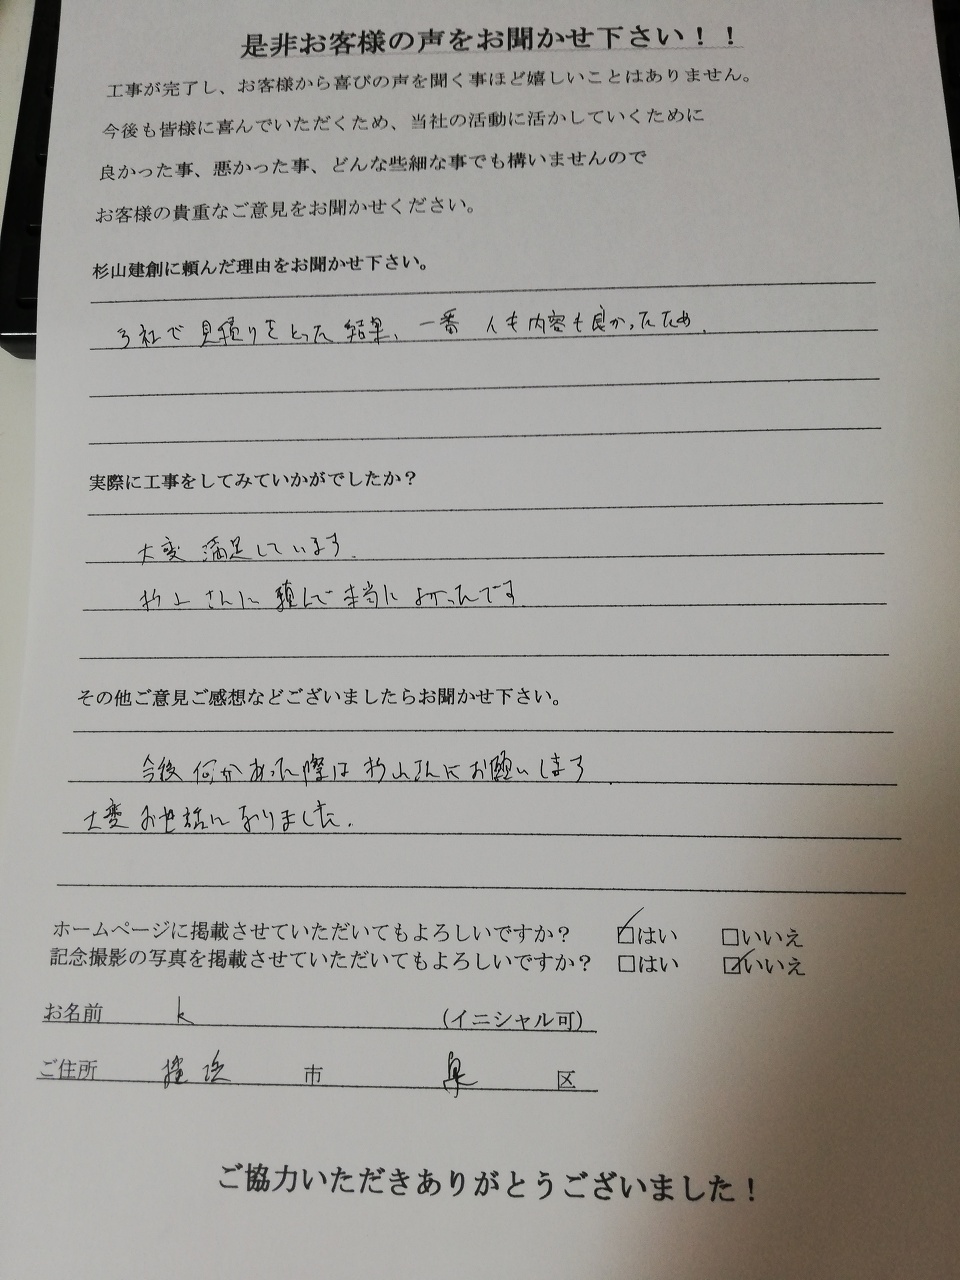 是非お客様の声をお聞かせ下さい！！
工事が完了し、お客様から喜びの声を聞く事ほど嬉しいことはありません。
今後も皆様に喜んでいただくため、当社の活動に活かしていくために
良かった事、悪かった事、どんな些細な事でも構いませんので
お客様の貴重なご意見をお聞かせください。
杉山建創に頼んだ理由をお聞かせ下さい。
3社で見積りをとった結果、一番 人も内容も良かったため.
実際に工事をしてみていかがでしたか？
大変 満足しています.
杉山さんに頼んで本当によかったです
その他ご意見ご感想などございましたらお聞かせ下さい。
今後何かあった際は杉山さんにお願いします
大変お世話になりました.
ホームページに掲載させていただいてもよろしいですか？ ☑はい □いいえ
記念撮影の写真を掲載させていただいてもよろしいですか？ □はい ☑いいえ
お名前 k (イニシャル可)
ご住所 横浜 市 泉 区
ご協力いただきありがとうございました！